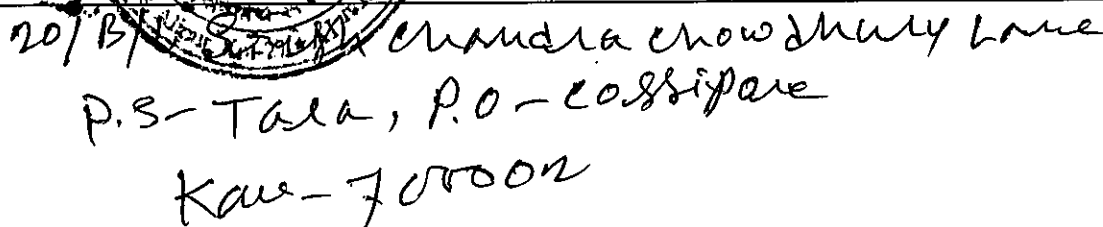 20/B/1, Chandra Chowdhury Lane
P.S- Tala, P.O- Cossipore
Kol- 700002